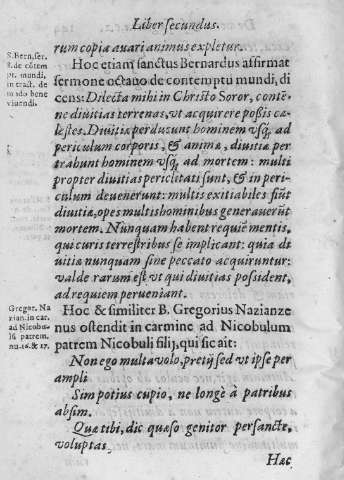 Liber secundus.
rum copia auari animus expletur.
S. Bern. ser.
8. de cōtem
pt. mundi,
in tract. de
modo bene
viuendi.
Hoc etiam sanctus Bernardus affirmat
sermone octauo de contemptu mundi, di
cens: Dilecta mihi in Christo Soror, contē-
ne diuitias terrenas, vt acquirere poßis cæ-
lestes. Diuitiæ perducunt hominem vsq; ad
periculum corporis, & animæ, diuitiæ per
trahunt hominem vsq; ad mortem: multi
propter diuitias pericletati sunt, & in peri-
culum deuenerunt: multis exitiabiles fiūt
diuitiæ, opes multis hominibus generauerūt
mortem. Nunquam habent requiē mentis,
qui curis terrestribus se implicant: quia di
uitiæ nunquam sine peccato acquiruntur:
valde rarum est, vt qui diuitias possident,
ad requiem perueniant.
Gregor. Na
zian. in car.
ad Nicobu.
16 patrem.
nu. 16. & 17.
Hoc & similiter B. Gregorius Nazianze
nus ostendit in carmine ad Nicobulum
patrem Nicobuli filij, qui sic ait:
Non ego multa volo, pretij sed vt ipse per
ampli
Sim potius cupio, ne longè à patribus
absim.
Quæ tibi, dic quæso genitor persancte,
voluptas
Hæc